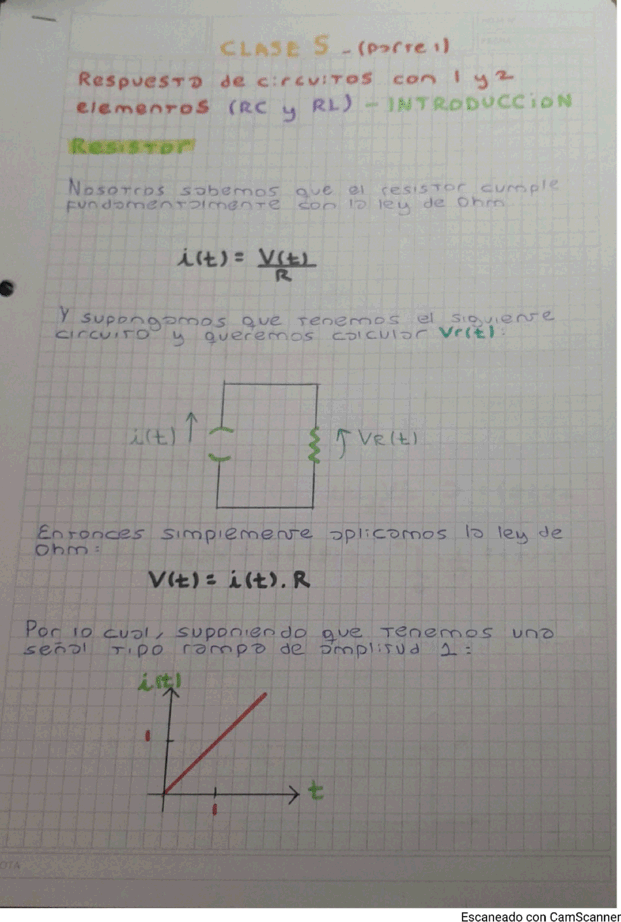 CLASE 5 - (parte 1)
Respuesta de circuitos con 1 y 2
elementos (RC y RL) - INTRODUCCION
Resistor
Nosotros sabemos que el resistor cumple
fundamentalmente con la ley de Ohm
i(t) = V(t)/R
Y supongamos que tenemos el siguiente
circuito y queremos calcular Vr(t):
i(t) ↑ ↑ VR(t)
Entonces simplemente aplicamos la ley de
Ohm:
V(t) = i(t). R
Por lo cual, suponiendo que tenemos una
señal tipo rampa de amplitud 1:
i(t)
1
t
1
Escaneado con CamScanner